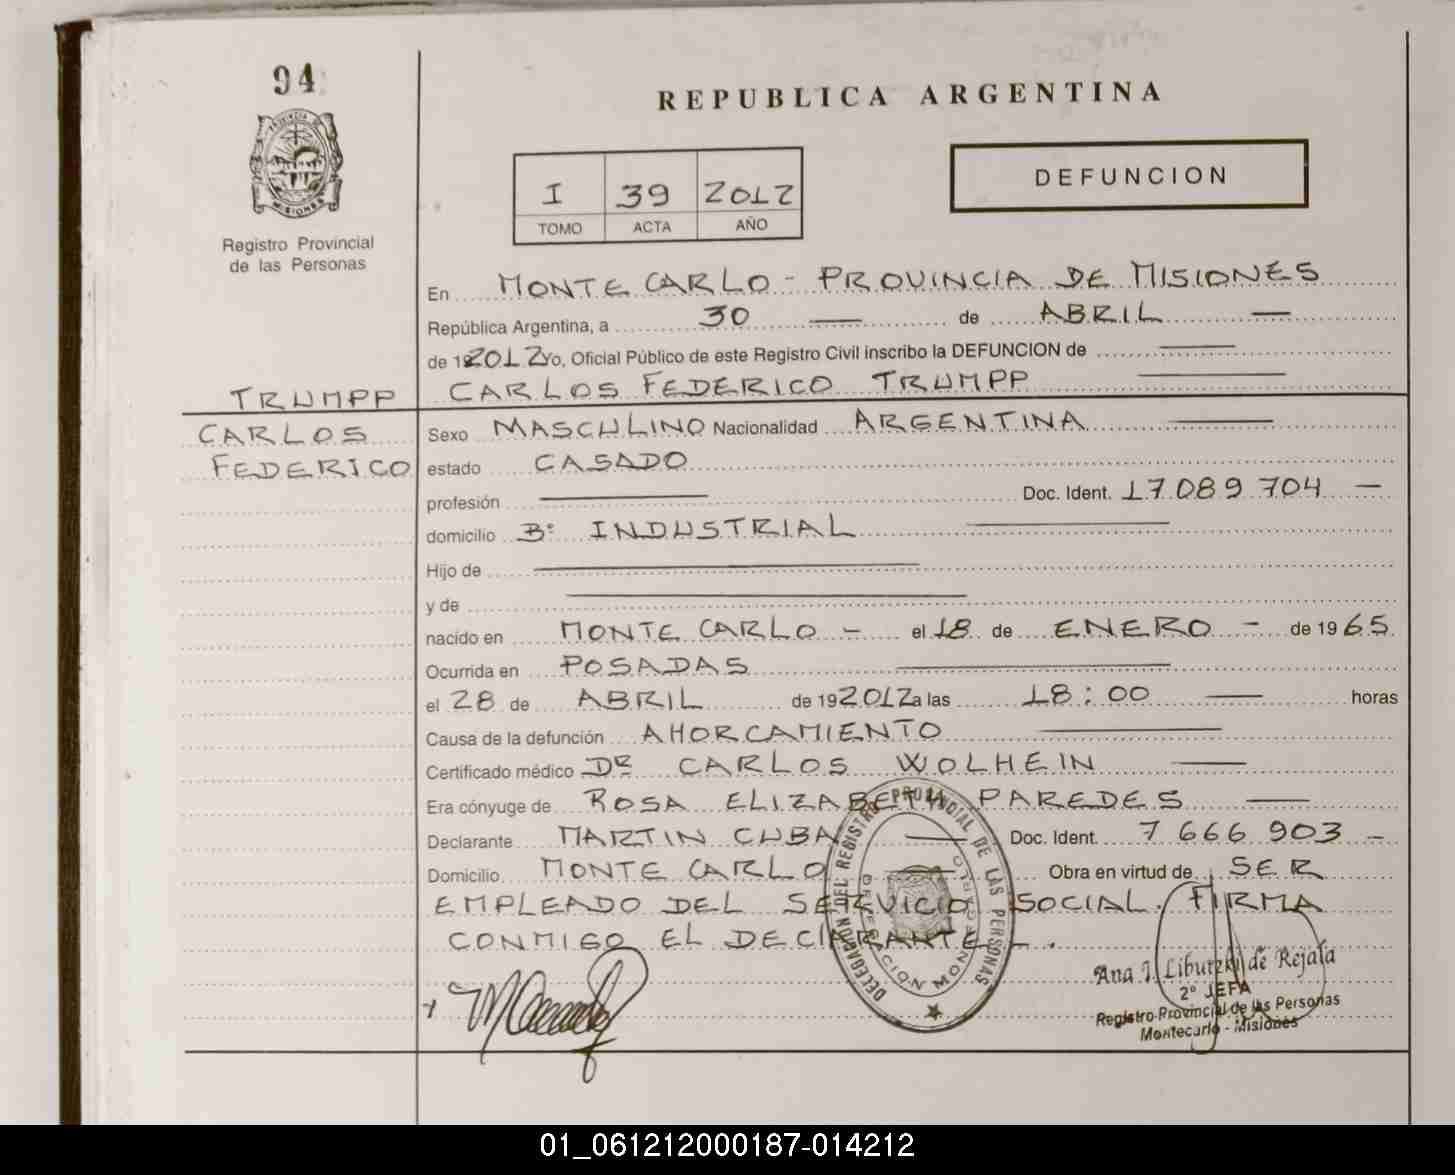 94
REPUBLICA ARGENTINA
PROVINCIA DE
MISIONES
Registro Provincial
de las Personas
I 39 2012
TOMO ACTA AÑO
DEFUNCION
En MONTE CARLO - PROVINCIA DE MISIONES
República Argentina, a 30 — de ABRIL —
de 192012 Yo, Oficial Público de este Registro Civil inscribo la DEFUNCION de —
TRUMPP
CARLOS
FEDERICO
CARLOS FEDERICO TRUMPP —
Sexo MASCULINO Nacionalidad ARGENTINA —
estado CASADO
profesión — Doc. Ident. 17.089.704 —
domicilio Bº INDUSTRIAL —
Hijo de —
y de —
nacido en MONTE CARLO — el 18 de ENERO — de 1965
Ocurrida en POSADAS —
el 28 de ABRIL de 192012 a las 18:00 — horas
Causa de la defunción AHORCAMIENTO —
Certificado médico Dr CARLOS WOLHEIN —
Era cónyuge de ROSA ELIZABETH PAREDES —
Declarante MARTIN CUBA — Doc. Ident. 7.666.903 —
Domicilio MONTE CARLO — Obra en virtud de SER
EMPLEADO DEL SERVICIO SOCIAL. FIRMA
CONMIGO EL DECLARANTE -.
DELEGACION DEL REGISTRO PROVINCIAL DE LAS PERSONAS
DELEGACION MONTECARLO
Ana I. Libutzki de Rejala
2º JEFA
Registro Provincial de las Personas
Montecarlo - Misiones
01_061212000187-014212